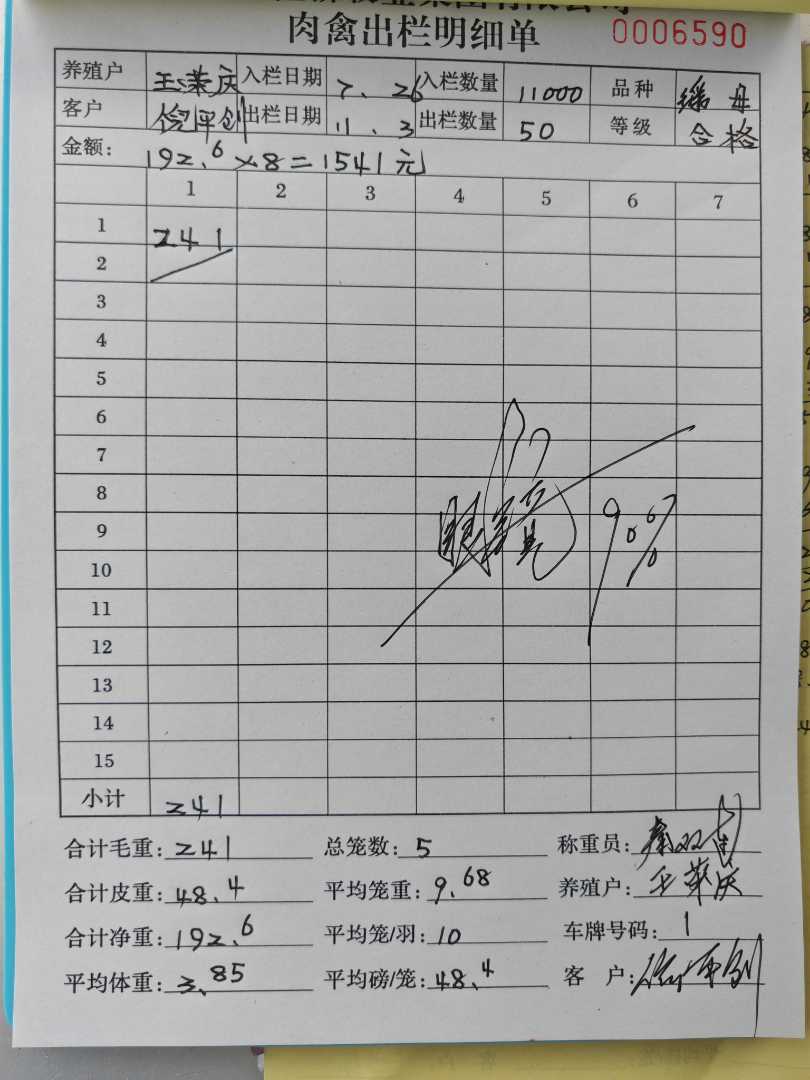 肉禽出栏明细单 0006590
养殖户 王荣庆 入栏日期 7、26 入栏数量 11000 品种 母
客户 出栏日期 11、3 出栏数量 50 等级 合格
金额: 192.6×8=1541元
1 2 3 4 5 6 7
1 241
2
3
4
5
6
7
8
9
10
11
12
13
14
15
小计 241
合计毛重: 241 总笼数: 5 称重员:
合计皮重: 48.4 平均笼重: 9.68 养殖户: 王荣庆
合计净重: 192.6 平均笼/羽: 10 车牌号码: 1
平均体重: 3.85 平均磅/笼: 48.4 客 户: